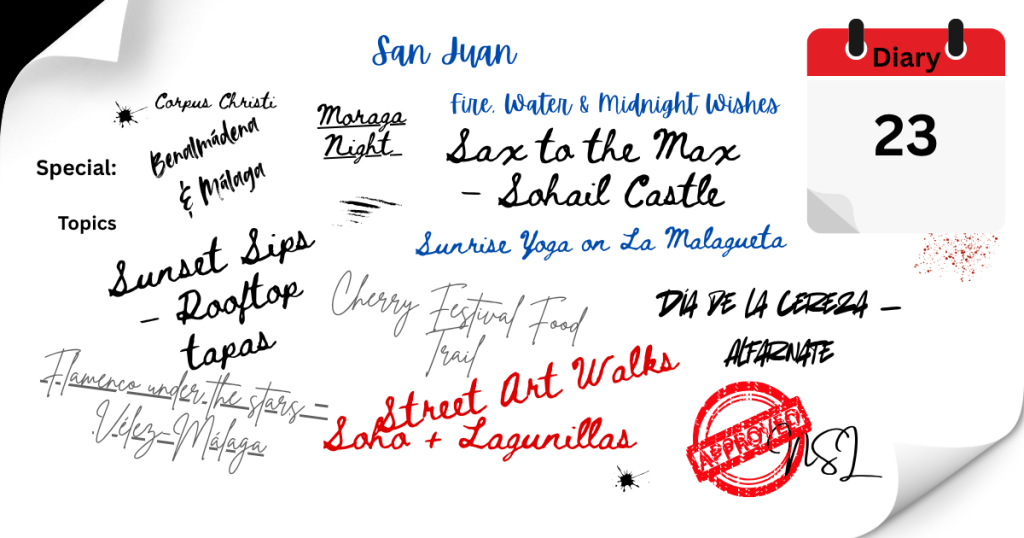 San Juan
Diary
23
Corpus Christi
Benalmádena
& Málaga
Moraga
Night
Fire, Water & Midnight Wishes
Sax to the Max
– Sohail Castle
Special:
Topics
Sunrise Yoga on La Malagueta
Sunset Sips
– Rooftop
tapas
Cherry Festival Food
Trail
DÍA DE LA CEREZA –
ALFARNATE
Flamenco under the stars –
Vélez-Málaga
Street Art Walks
Soho + Lagunillas
APPROVED
NSL